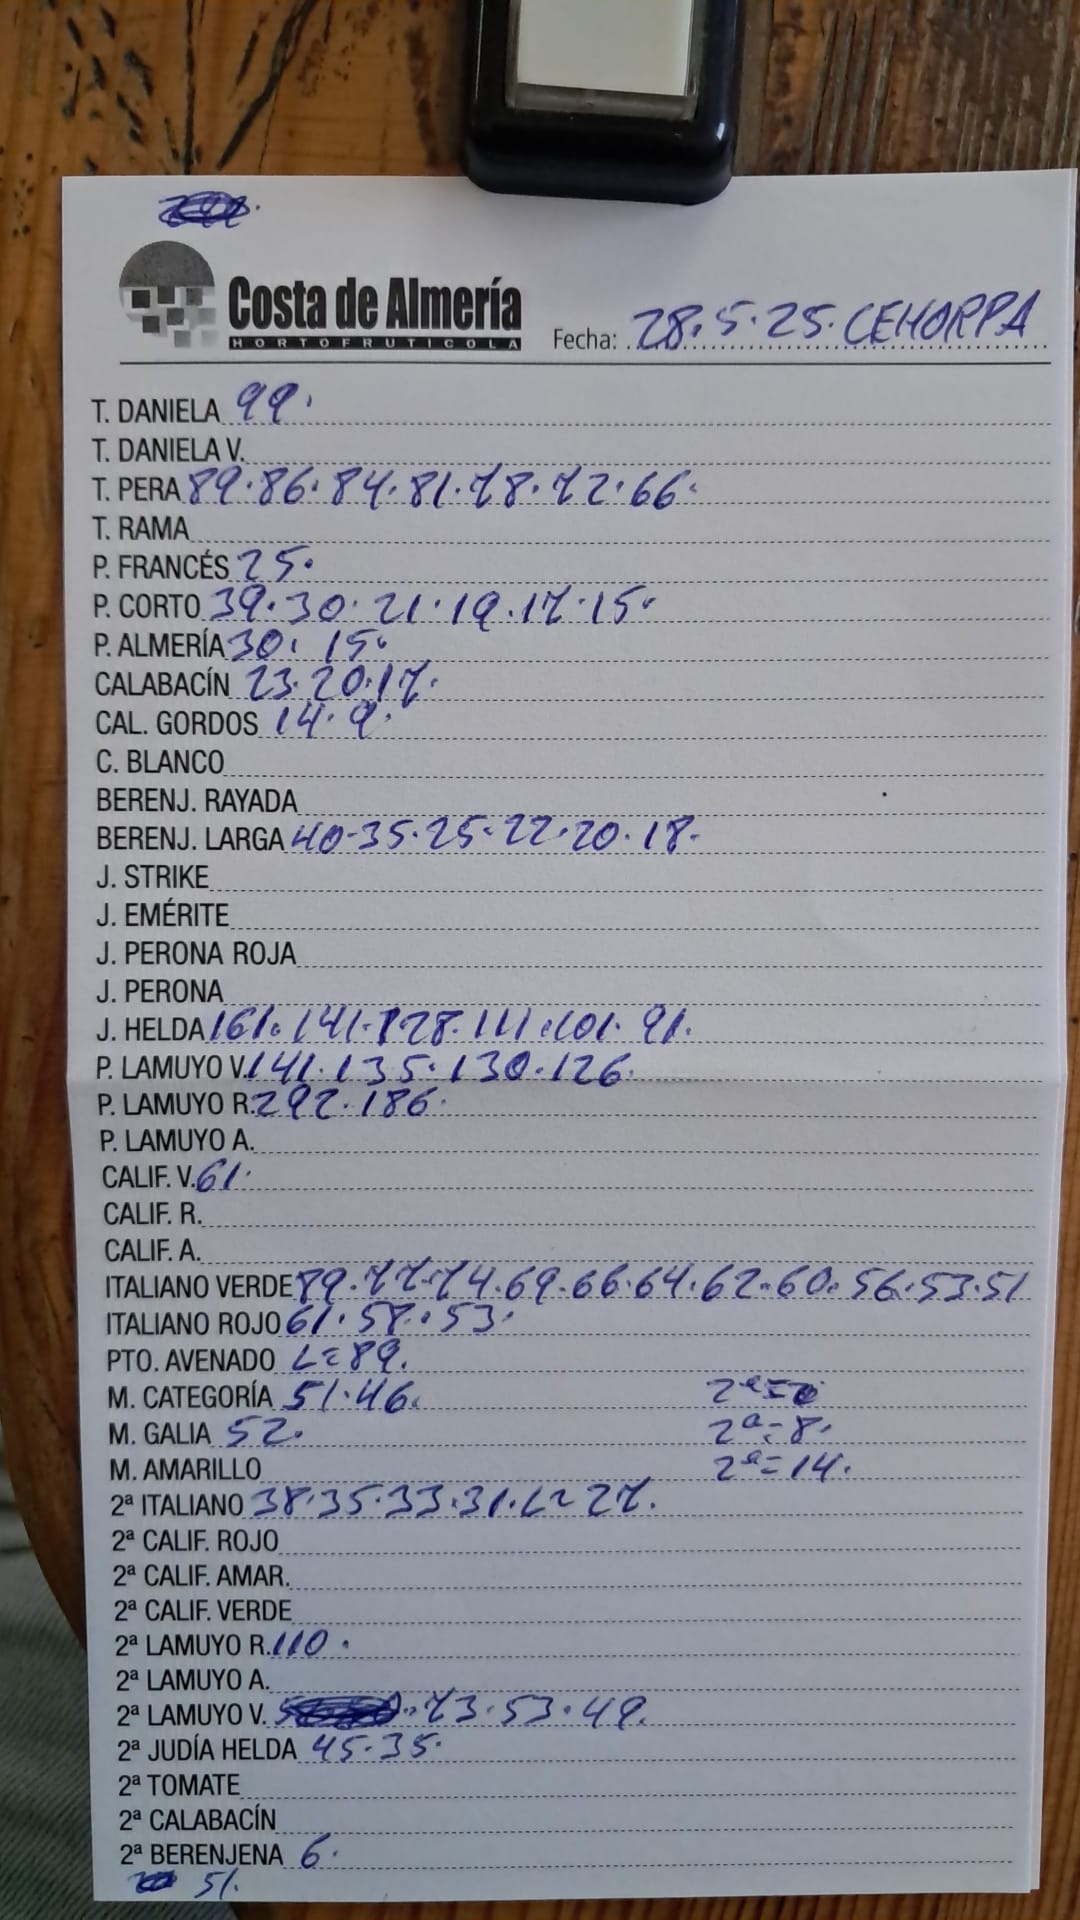 Costa de Almería
HORTOFRUTICOLA
Fecha: 28.5.25. CEHORPA
T. DANIELA 99.
T. DANIELA V.
T. PERA 89.86.84.81.78.72.66.
T. RAMA
P. FRANCÉS 25.
P. CORTO 39.30.21.19.17.15.
P. ALMERÍA 30. 15.
CALABACÍN 23.20.17.
CAL. GORDOS 14.9.
C. BLANCO
BERENJ. RAYADA
BERENJ. LARGA 40-35.25-22.20.18-
J. STRIKE
J. EMÉRITE
J. PERONA ROJA
J. PERONA
J. HELDA 161.141.128.111.101.91.
P. LAMUYO V. 141.135.130.126.
P. LAMUYO R. 292.186.
P. LAMUYO A.
CALIF. V. 61.
CALIF. R.
CALIF. A.
ITALIANO VERDE 89.77.74.69.66.64.62.60.56.53.51
ITALIANO ROJO 61.57.53.
PTO. AVENADO L=89.
M. CATEGORÍA 51.46. 2ª=
M. GALIA 52. 2ª=8.
M. AMARILLO 2ª=14.
2ª ITALIANO 38.35.33.31.L=27.
2ª CALIF. ROJO
2ª CALIF. AMAR.
2ª CALIF. VERDE
2ª LAMUYO R. 110.
2ª LAMUYO A.
2ª LAMUYO V. 73.53.49.
2ª JUDÍA HELDA 45.35.
2ª TOMATE
2ª CALABACÍN
2ª BERENJENA 6.
51.